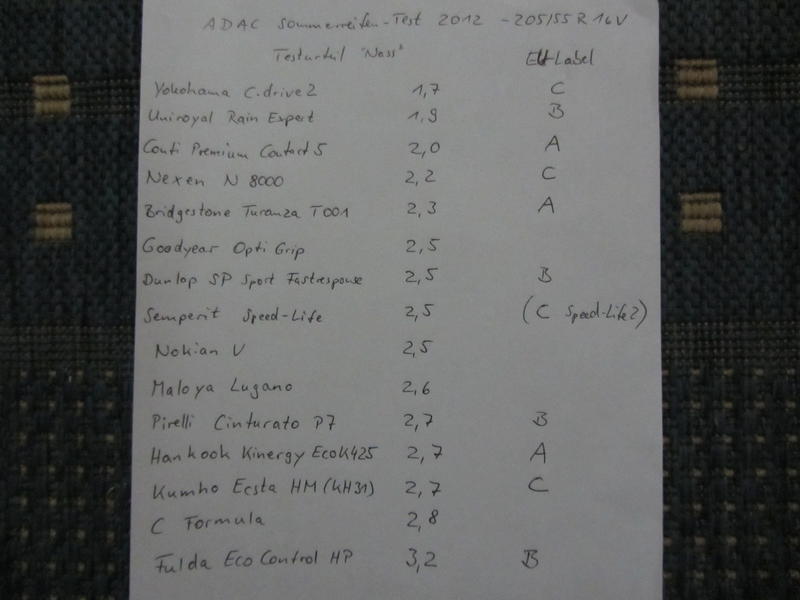 ADAC Sommerreifen-Test 2012 - 205/55 R 16 V
Testurteil "Nass" EU-Label
Yokohama C.drive2 1,7 C
Uniroyal Rain Expert 1,9 B
Conti Premium Contact 5 2,0 A
Nexen N 8000 2,2 C
Bridgestone Turanza T001 2,3 A
Goodyear Opti Grip 2,5
Dunlop SP Sport Fastresponse 2,5 B
Semperit Speed-Life 2,5 (C Speed-Life2)
Nokian V 2,5
Maloya Lugano 2,6
Pirelli Cinturato P7 2,7 B
Hankook Kinergy Eco K425 2,7 A
Kumho Ecsta HM (KH31) 2,7 C
C Formula 2,8
Fulda EcoControl HP 3,2 B